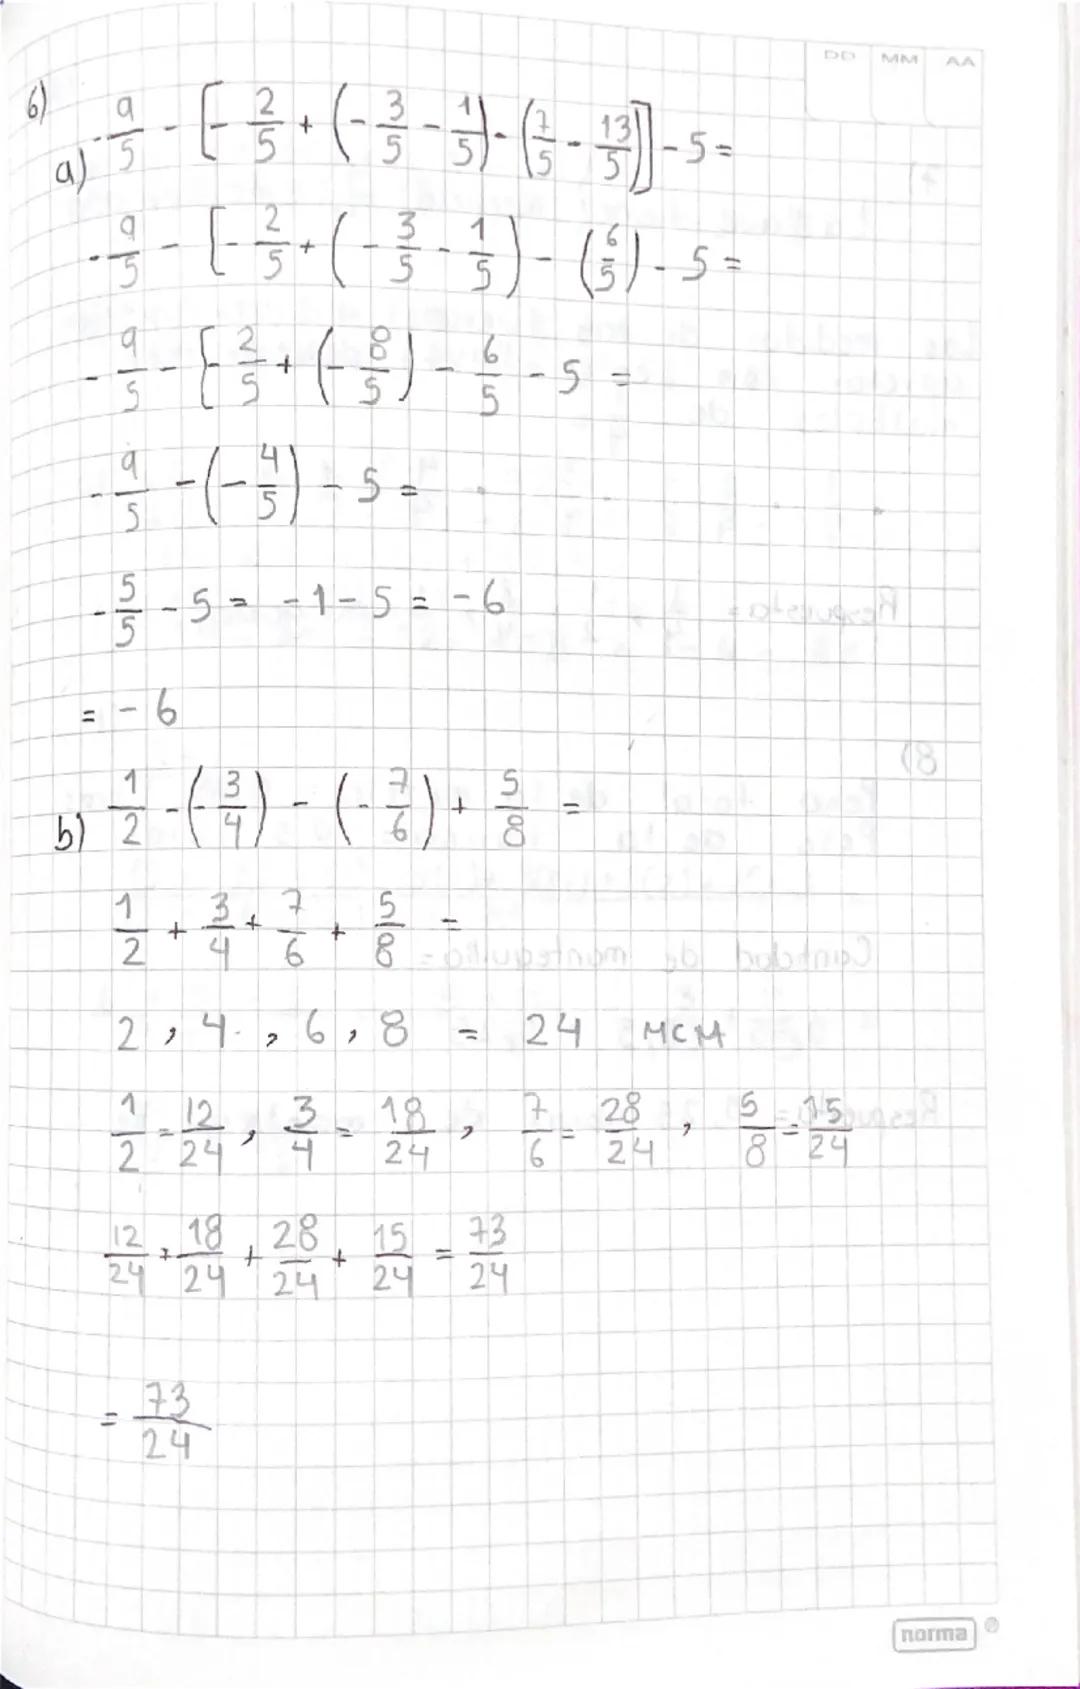 DD MM AA
6)
a) -9/5 - [-2/5 + (-3/5 - 1/5) - (7/5 - 13/5)] - 5 =
-9/5 - [-2/5 + (-3/5 - 1/5) - (6/5) - 5 =
-9/5 - [-2/5 + (-8/5) - 6/5 - 5 =
-9/5 - (-4/5) - 5 =
-5/5 - 5 = -1 - 5 = -6
= -6
b) 1/2 - (-3/4) - (-7/6) + 5/8 =
1/2 + 3/4 + 7/6 + 5/8 =
2, 4, 6, 8 = 24 MCM
1/2 = 12/24, 3/4 = 18/24, 7/6 = 28/24, 5/8 = 15/24
12/24 + 18/24 + 28/24 + 15/24 = 73/24
= 73/24
norma